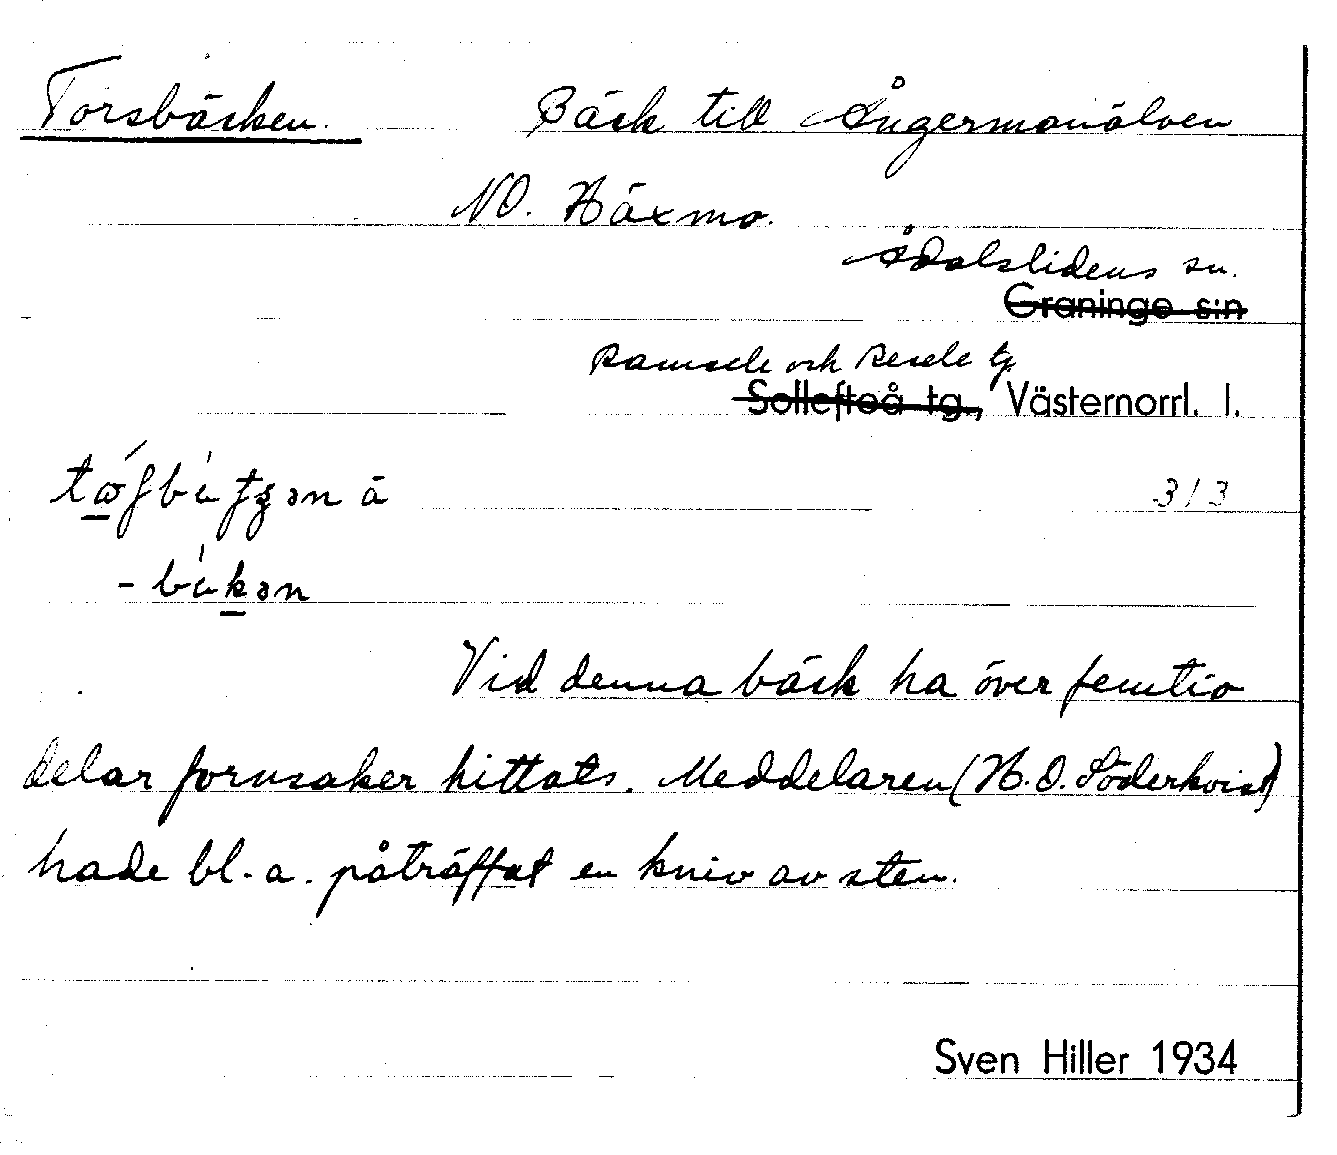 Torsbäcken. Bäck till Ångermanälven
NO. Häxmo.
Ådalslidens sn.
Graninge s:n
Ramsele och Resele tg
Sollefteå tg., Västernorrl. l.
313
Vid denna bäck ha över femtio
delar fornsaker hittats. Meddelaren (H.O. Söderkvist)
hade bl.a. påträffat en kniv av sten.
Sven Hiller 1934